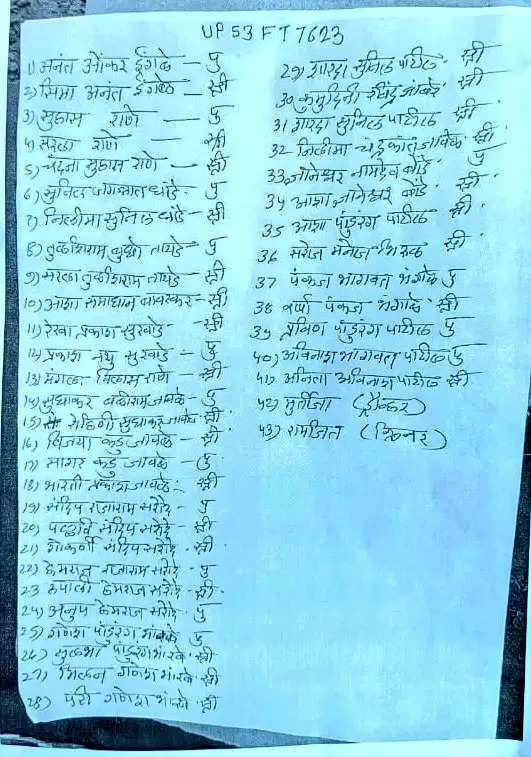 UP 53 FT 7623
1) अनंत ओंकर इंगळे — पु
2) सिमा अनंत इंगळे — स्त्री
3) सुहास राणे — पु
4) सरला राणे — स्त्री
5) चंदना सुहास राणे — स्त्री
6) सुनिल जगन्नाथ धांडे - पु
7) निलीमा सुनिल धांडे - स्त्री
8) तुळशीराम बुधो तायडे - पु
9) सरला तुळशीराम तायडे - स्त्री
10) आशा समाधान बावस्कर - स्त्री
11) रेखा प्रकाश सुरवाडे - स्त्री
12) प्रकाश नथु सुरवाडे - पु
13) मंगला विलास राणे - स्त्री
14) सुधाकर बळीराम जावळे - पु
15) रोहिणी सुधाकर जावळे - स्त्री
16) विजया कडु जावळे - स्त्री
17) सागर कडु जावळे - पु
18) भारती प्रकाश जावळे - स्त्री
19) संदिप राजाराम सरोदे - पु
20) पल्लवी संदिप सरोदे - स्त्री
21) गोकर्णी संदिप सरोदे - स्त्री
22) हेमराज राजाराम सरोदे - पु
23 रुपाली हेमराज सरोदे - स्त्री
24) अनुप हेमराज सरोदे पु
25) गणेश पांडुरंग भारंबे पु
26) सुलभा पांडुरंग भारंबे स्त्री
27) मिलन गणेश भारंबे स्त्री
28) परी गणेश भारंबे स्त्री
29) शारदा सुनिल पाटील स्त्री
30 कुमुदिनी रविंद्र स्त्री
31 शारदा सुनिल पाटील स्त्री
32 निलीमा चंद्रकांत जावळे स्त्री
33 ज्ञानेश्वर नामदेव बोंडे पु
34 आशा ज्ञानेश्वर बोंडे स्त्री
35 आशा पांडुरंग पाटील स्त्री
36 सरोज मनोज स्त्री
37 पंकज भागवत भंगाळे पु
38 वर्षा पंकज भंगाळे स्त्री
39 प्रविण पांडुरंग पाटील पु
40) अविनाश भागवत पाटील पु
41) अनिता अविनाश पाटील स्त्री
42) मुर्तीजा (ड्रायव्हर)
43) रामजित (क्लिनर)